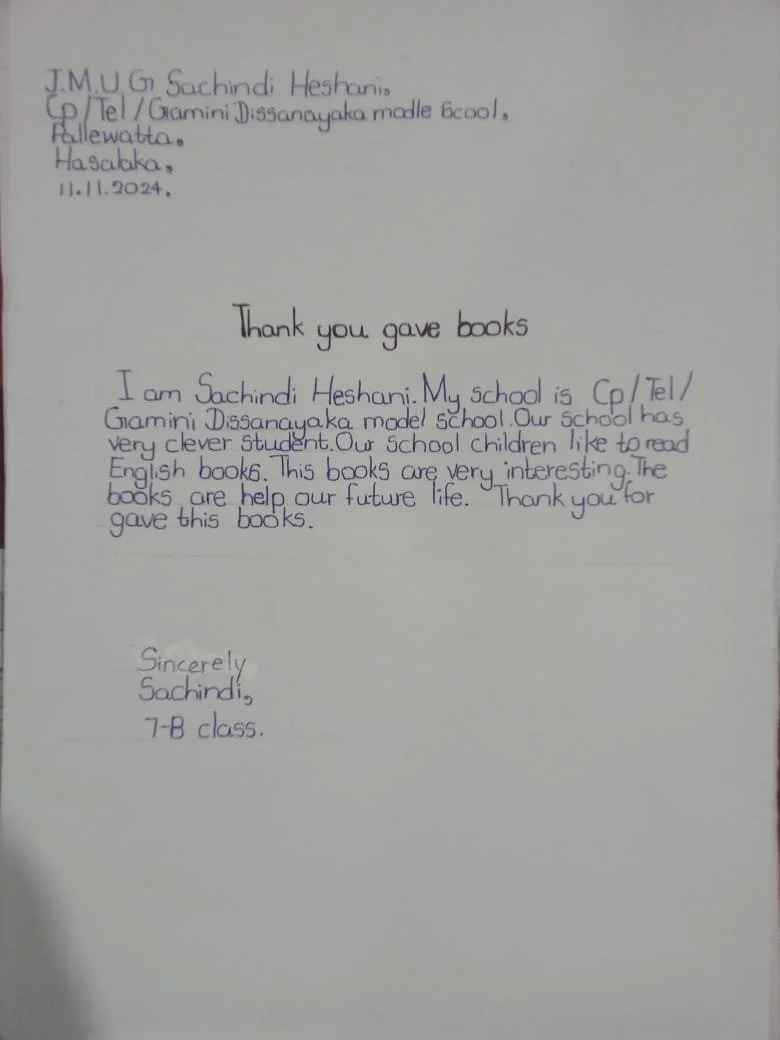 J.M.U.G Sachindi Heshani,
Cp/Tel/Gamini Dissanayaka modle Scool,
Pallewatta,
Hasalaka,
11.11.2024.
Thank you gave books
I am Sachindi Heshani. My school is Cp/Tel/
Gamini Dissanayaka model school. Our school has
very clever student. Our school children like to read
English books. This books are very interesting. The
books are help our future life. Thank you for
gave this books.
Sincerely
Sachindi,
7-B class.